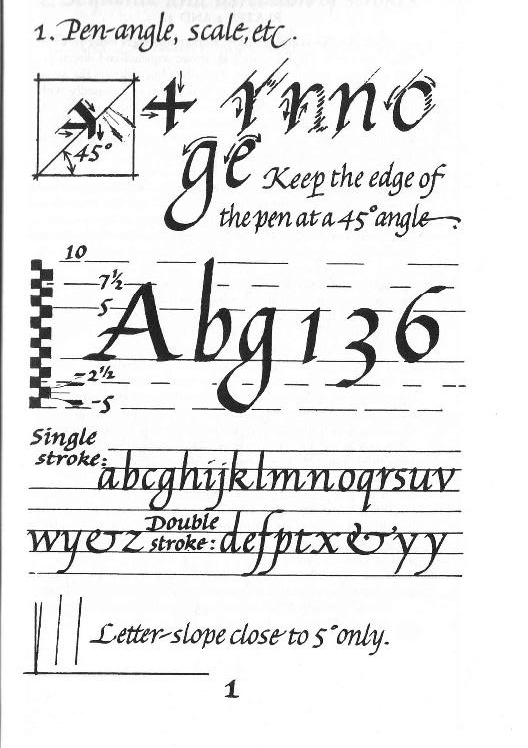 1. Pen-angle, scale, etc.
45°
r n n o
g e
Keep the edge of
the pen at a 45° angle.
10
7½
5
-2½
-5
A b g 1 3 6
Single
stroke:
abcghijklmnoqrsuv
wy&z
Double
stroke:
defptx&yy
Letter-slope close to 5° only.
1